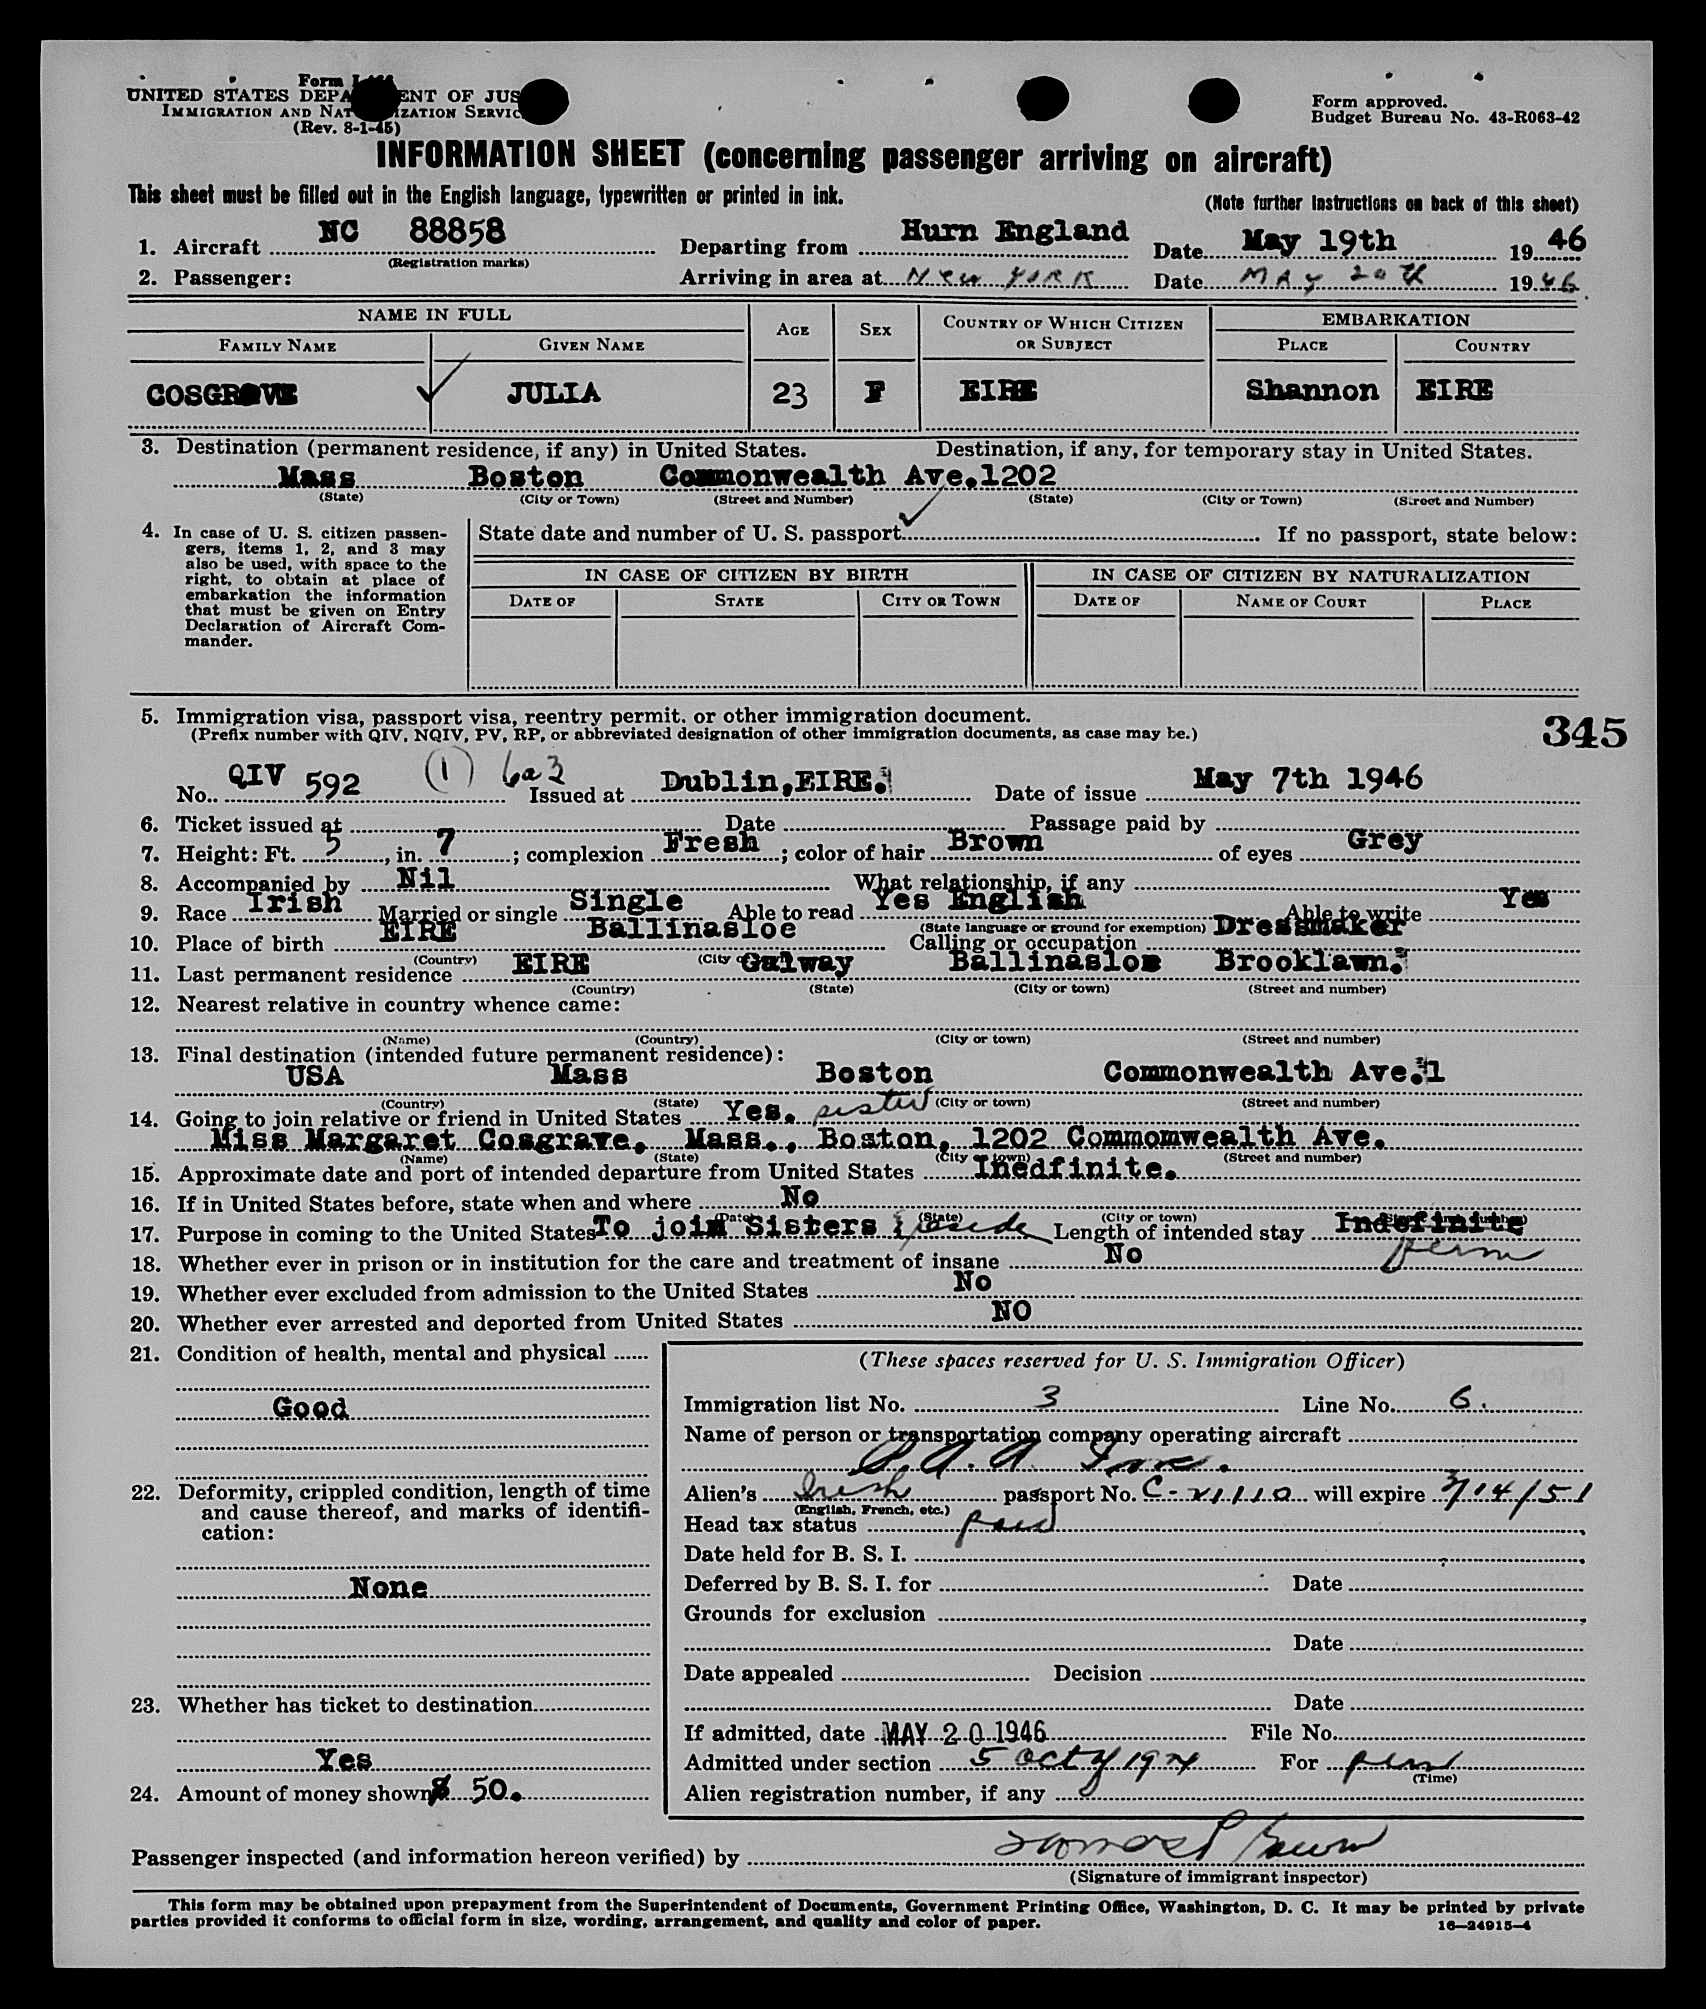 Form I-466
UNITED STATES DEPARTMENT OF JUSTICE
IMMIGRATION AND NATURALIZATION SERVICE
(Rev. 8-1-45)
Form approved.
Budget Bureau No. 43-R063-42
INFORMATION SHEET (concerning passenger arriving on aircraft)
This sheet must be filled out in the English language, typewritten or printed in ink.
(Note further instructions on back of this sheet)
1. Aircraft NC 88858 Departing from Hurn England Date May 19th 1946
(Registration marks)
2. Passenger: Arriving in area at New York Date MAY 20th 1946
NAME IN FULL AGE SEX COUNTRY OF WHICH CITIZEN OR SUBJECT EMBARKATION
FAMILY NAME GIVEN NAME PLACE COUNTRY
COSGROVE JULIA 23 F EIRE Shannon EIRE
3. Destination (permanent residence, if any) in United States. Destination, if any, for temporary stay in United States.
Mass Boston Commonwealth Ave.1202
(State) (City or Town) (Street and Number) (State) (City or Town) (Street and Number)
4. In case of U. S. citizen passen-
gers, items 1, 2, and 3 may
also be used, with space to the
right, to obtain at place of
embarkation the information
that must be given on Entry
Declaration of Aircraft Com-
mander.
State date and number of U. S. passport If no passport, state below:
IN CASE OF CITIZEN BY BIRTH IN CASE OF CITIZEN BY NATURALIZATION
DATE OF STATE CITY OR TOWN DATE OF NAME OF COURT PLACE
5. Immigration visa, passport visa, reentry permit, or other immigration document.
(Prefix number with QIV, NQIV, PV, RP, or abbreviated designation of other immigration documents, as case may be.)
345
No. QIV 592 (1) 6a3 Issued at Dublin,EIRE. Date of issue May 7th 1946
6. Ticket issued at Date Passage paid by
7. Height: Ft. 5, in. 7; complexion Fresh; color of hair Brown of eyes Grey
8. Accompanied by Nil What relationship, if any
9. Race Irish Married or single Single Able to read Yes English Able to write Yes
(State language or ground for exemption)
10. Place of birth EIRE Ballinasloe Calling or occupation Dressmaker
(Country) (City
11. Last permanent residence EIRE Galway Ballinasloe Brooklawn.
(Country) (State) (City or town) (Street and number)
12. Nearest relative in country whence came:
(Name) (Country) (City or town) (Street and number)
13. Final destination (intended future permanent residence):
USA Mass Boston Commonwealth Ave.1
(Country) (State) (City or town) (Street and number)
14. Going to join relative or friend in United States Yes. sister
Miss Margaret Cosgrave, Mass., Boston, 1202 Commomwealth Ave.
(Name) (State) (City or town) (Street and number)
15. Approximate date and port of intended departure from United States Inedfinite.
16. If in United States before, state when and where No
(Date) (State) (City or town) (Street and number)
17. Purpose in coming to the United States To join Sisters & reside Length of intended stay Indefinite
perm
18. Whether ever in prison or in institution for the care and treatment of insane No
19. Whether ever excluded from admission to the United States No
20. Whether ever arrested and deported from United States NO
21. Condition of health, mental and physical
Good
22. Deformity, crippled condition, length of time
and cause thereof, and marks of identifi-
cation:
None
23. Whether has ticket to destination
Yes
24. Amount of money shown $ 50.
(These spaces reserved for U. S. Immigration Officer)
Immigration list No. 3 Line No. 6.
Name of person or transportation company operating aircraft
P.A.A. Inc.
Alien's Irish passport No. C-21110 will expire 3/14/51
(English, French, etc.)
Head tax status paid
Date held for B. S. I.
Deferred by B. S. I. for Date
Grounds for exclusion
Date
Date appealed Decision
Date
If admitted, date MAY 20 1946 File No.
Admitted under section 5 act of 1924 For perm
(Time)
Alien registration number, if any
Passenger inspected (and information hereon verified) by
(Signature of immigrant inspector)
This form may be obtained upon prepayment from the Superintendent of Documents, Government Printing Office, Washington, D. C. It may be printed by private
parties provided it conforms to official form in size, wording, arrangement, and quality and color of paper.
16—24915-4